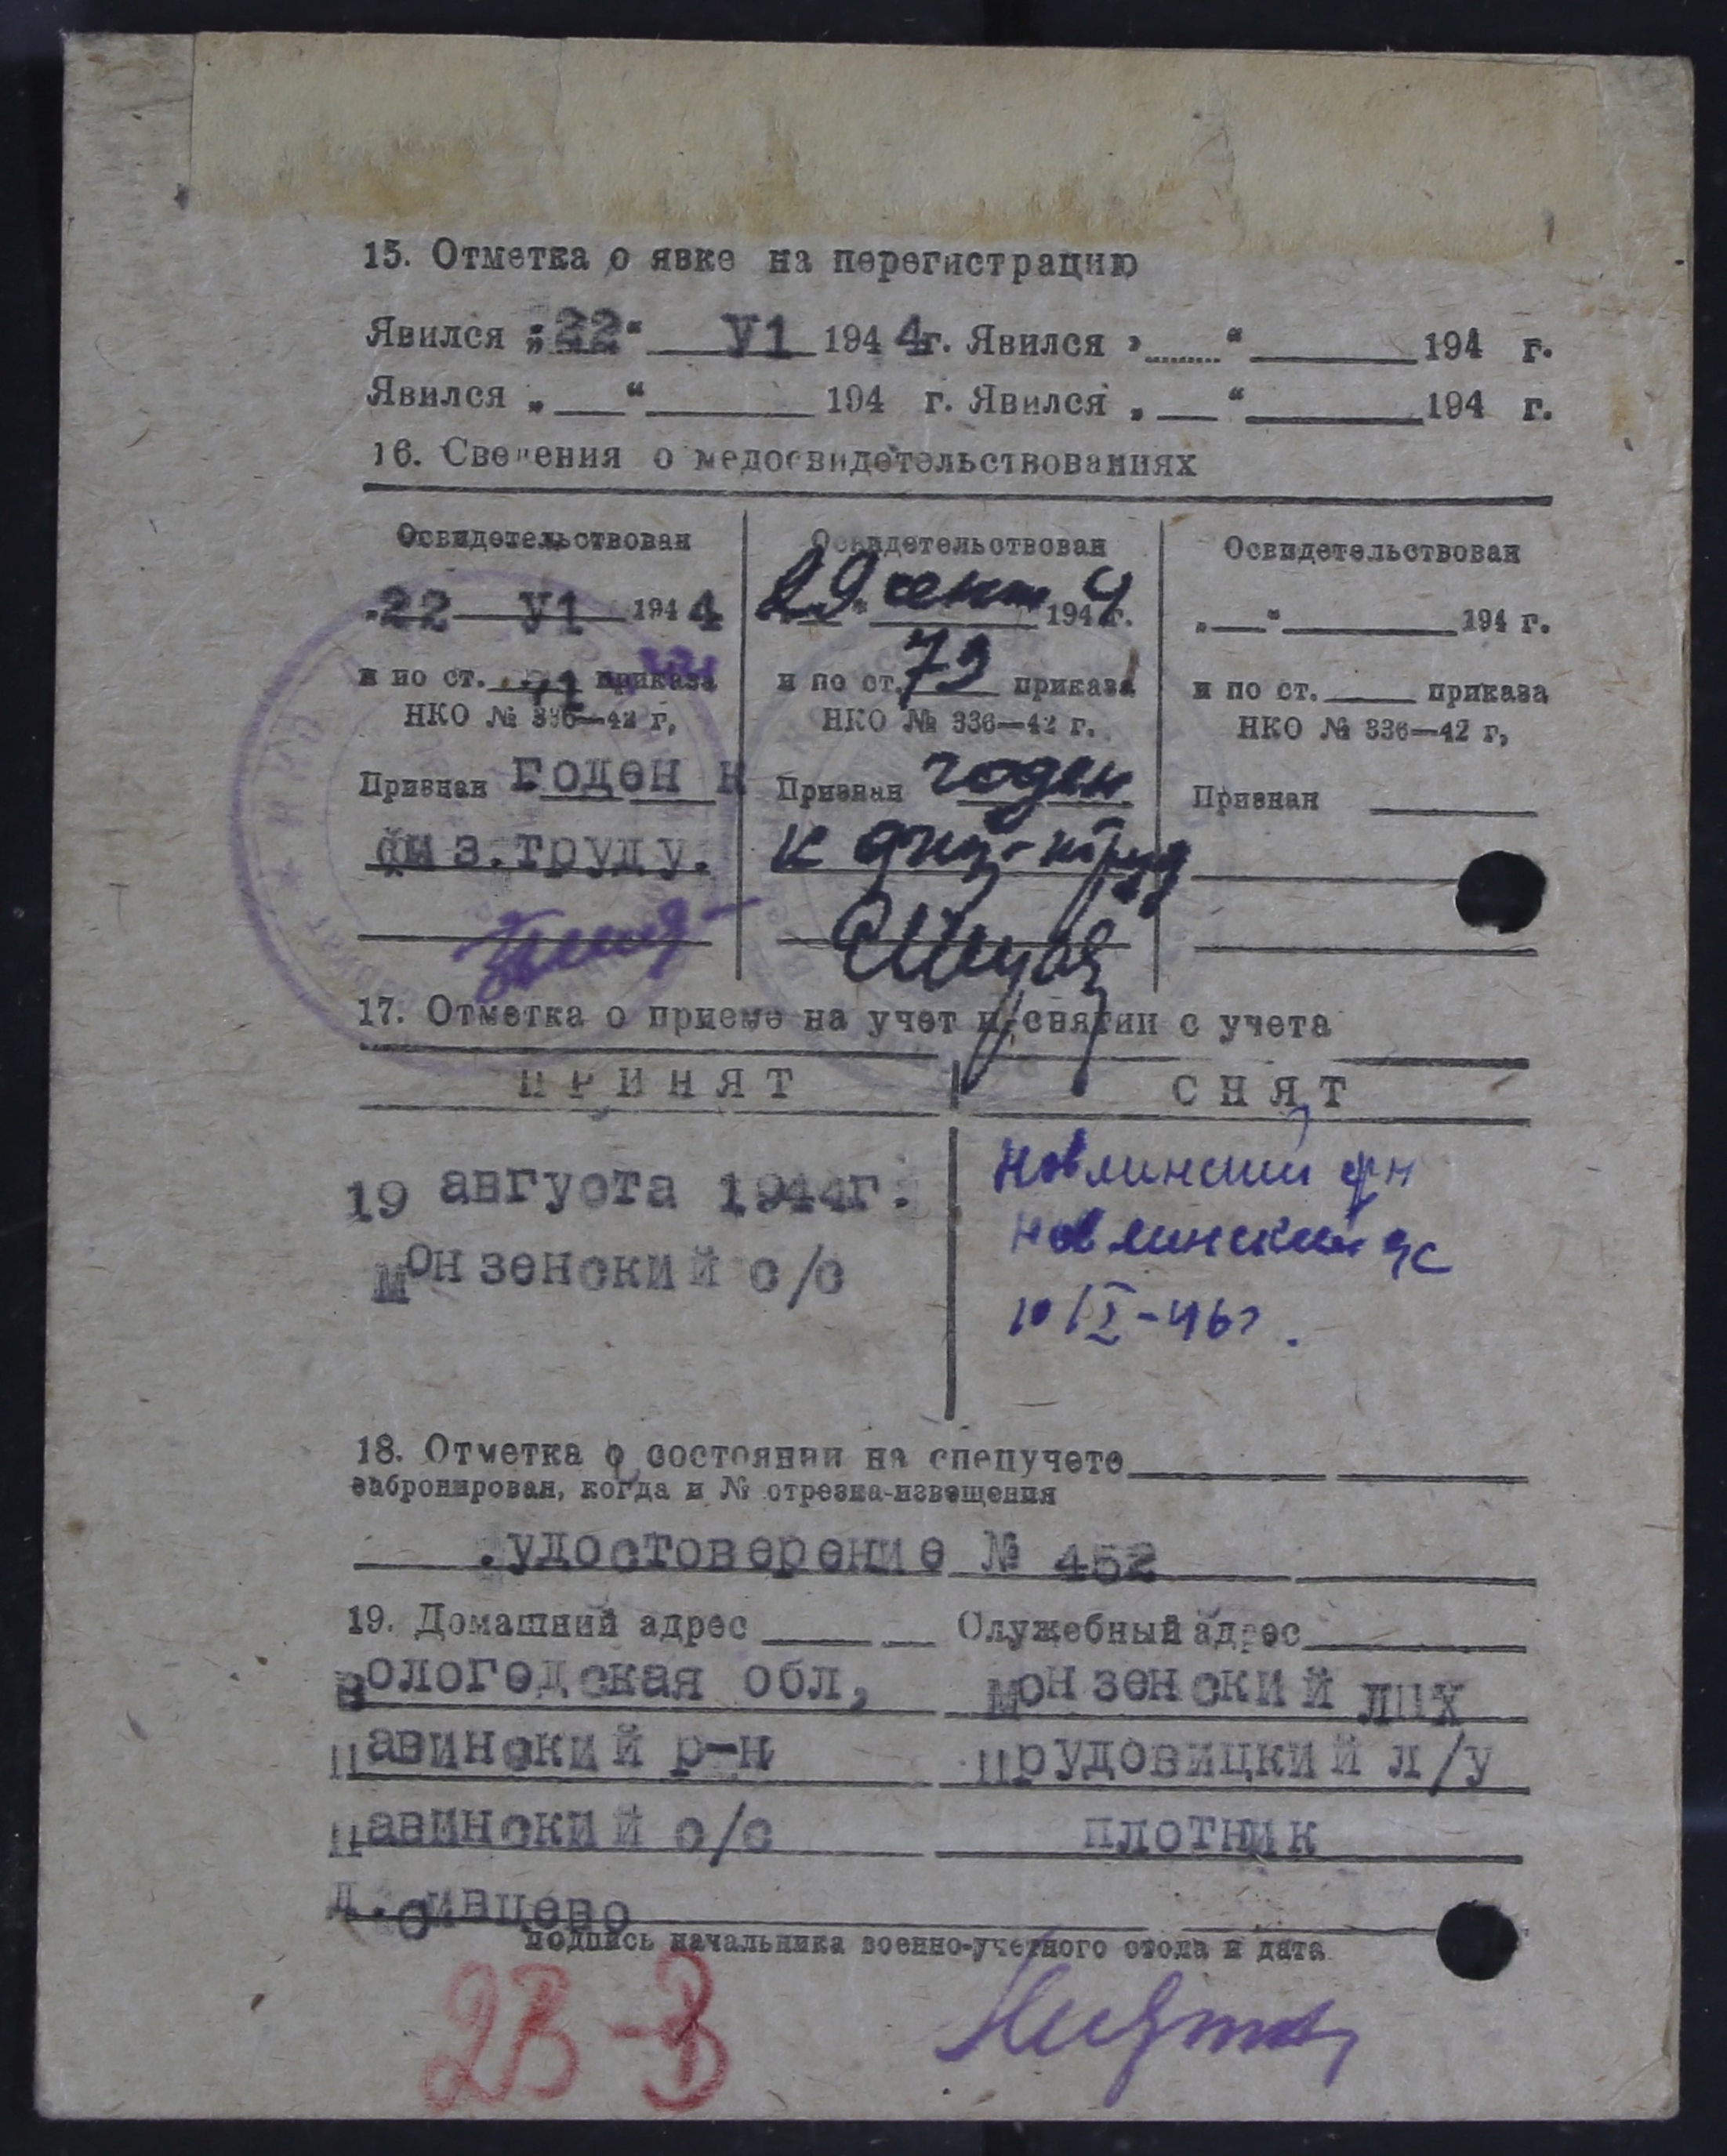 15. Отметка о явке на перегистрацию
Явился „22“ У1 1944г. Явился „ “ 194 г.
Явился „ “ 194 г. Явился „ “ 194 г.
16. Сведения о медосвидетельствованиях
Освидетельствован Освидетельствован Освидетельствован
„22 У1 1944 29 сент 1944 г. „ “ 194 г.
и по ст. приказа и по ст. 73 приказа и по ст. приказа
НКО № 336—42 г, НКО № 336—42 г. НКО № 336—42 г,
Признан Годен к Признан годен Признан
физ.труду. к физ-труд
17. Отметка о приеме на учет и снятии с учета
ПРИНЯТ СНЯТ
19 августа 1944г. Новлинский рн
Монзенский с/с Новлинский с/с
10/I-46г.
18. Отметка о состоянии на спецучете
забронирован, когда и № отрезка-извещения
.удостоверение № 452
19. Домашний адрес Служебный адрес
Вологодская обл, Монзенский ЛПХ
Павинский р-н Прудовицкий л/у
Павинский с/с плотник
Д. Сивцево
подпись начальника военно-учетного стола и дата
2В-В